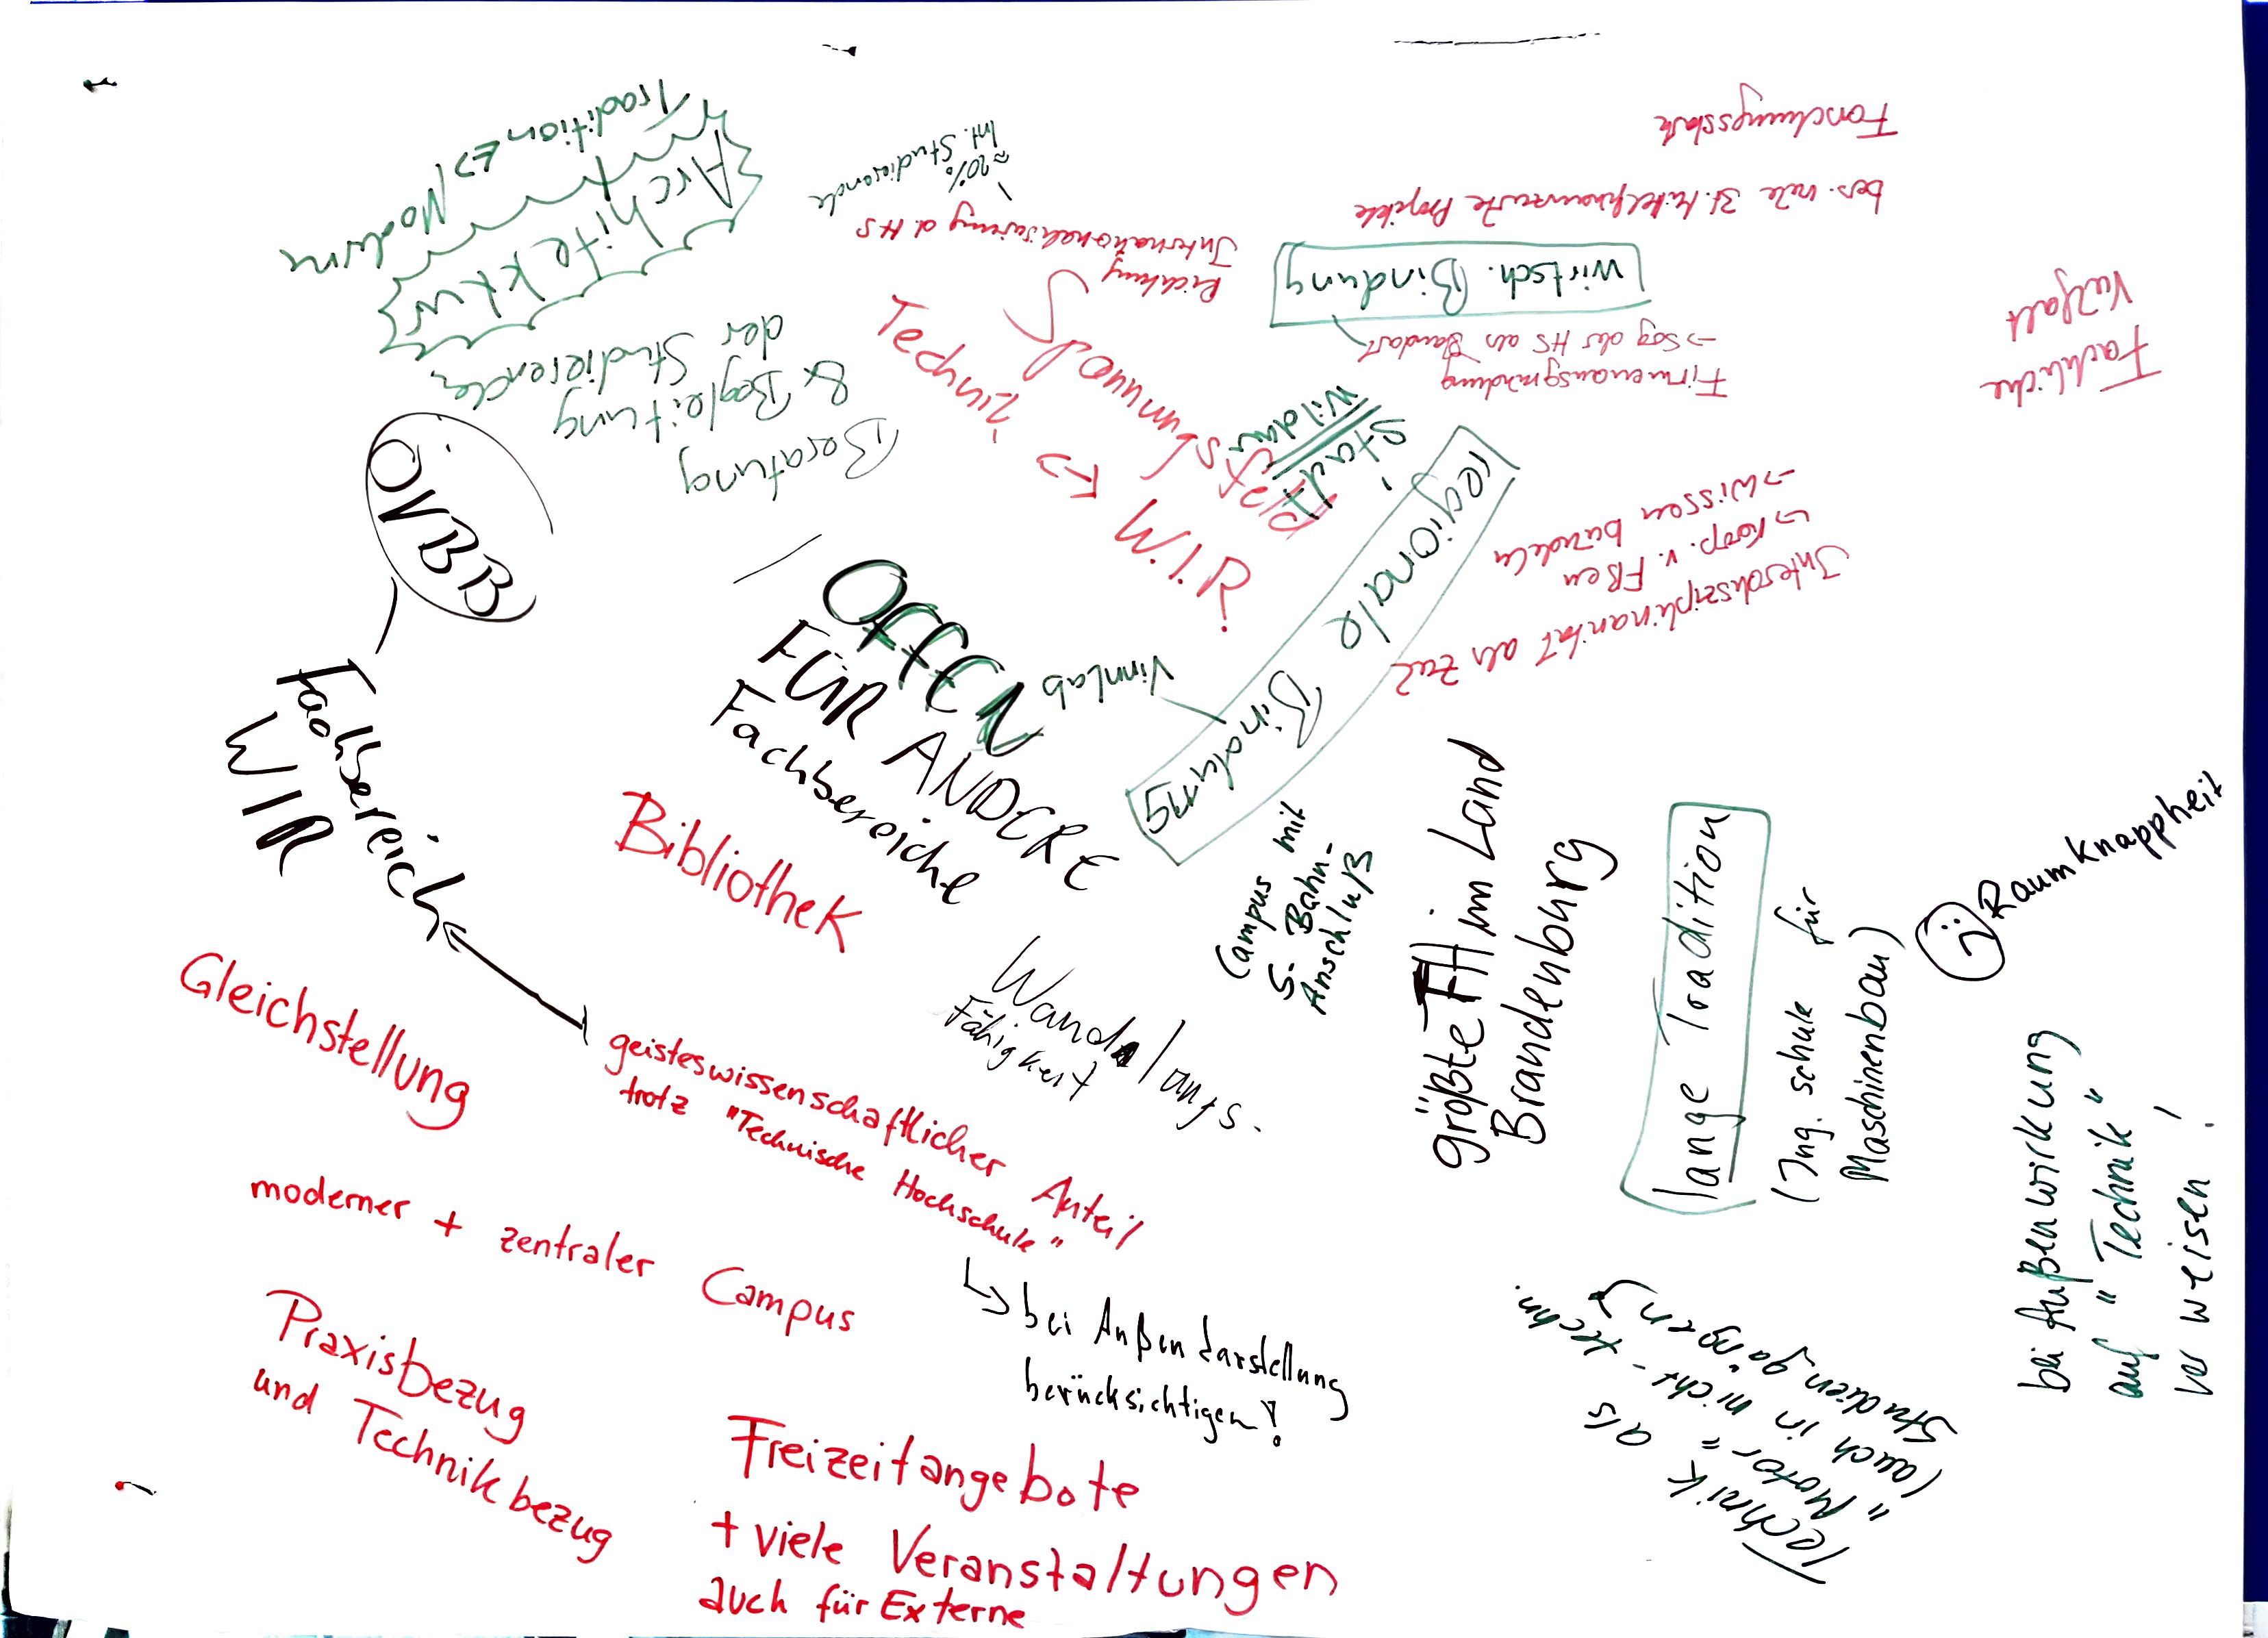 Tradition <-> Moderne
Architektur
Beratung
& Begleitung
der Studierenden
ÖVBB
Fachbereich
WIR
Richtung
Internationalisierung d. HS
≈20%
Int. Studierende
Spannungsfeld
Technik <-> W.I.R
Forschungsstark
bes. viele 3t. Mittelfinanzierte Projekte
Wirtsch. Bindung
Firmenausgründung
-> Sog der HS als Standort
Fachliche
Vielfalt
Stadt
Wildau
regionale Bindung
Vinnlab
Interdisziplinarität als Ziel
-> Koop. v. FBen
-> Wissen bündeln
OFFEN
FÜR ANDERE
Fachbereiche
Bibliothek
Campus mit
S-Bahn-
Anschluß
größte FH im Land
Brandenburg
lange Tradition
(Ing. schule für
Maschinenbau)
Raumknappheit
Wandlungs-
Fähigkeit
Gleichstellung
geisteswissenschaftlicher Anteil
trotz "Technische Hochschule"
bei Außendarstellung
berücksichtigen!
moderner + zentraler Campus
Praxisbezug
und Technikbezug
Freizeitangebote
+ viele Veranstaltungen
auch für Externe
Technik als
"Motor"
(auch in nicht-techn.
Studiengängen)
bei Außenwirkung
auf "Technik"
verweisen!